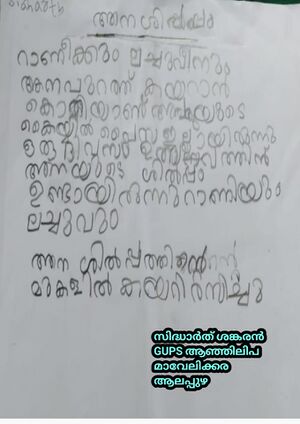 ആന ശില്പം
റാണിക്കും ലച്ചുവിനും
ആനപുറത്ത് കയറാൻ
കൊതിയാണ് അമ്മയുടെ
കൈയ്യിൽ പൈസ ഇല്ലായിരുന്നു
ഒരു ദിവസം ഉത്സവത്തിൻ
ആനയുടെ ശിൽപ്പം
ഉണ്ടായിരുന്നു റാണിയും
ലച്ചുവും
ആന ശിൽപ്പത്തിന്റെ
മുകളിൽ കയറി രസിച്ചു
സിദ്ധാർത് ശങ്കരൻ
GUPS ആഞ്ഞിലിപ
മാവേലിക്കര
ആലപ്പുഴ